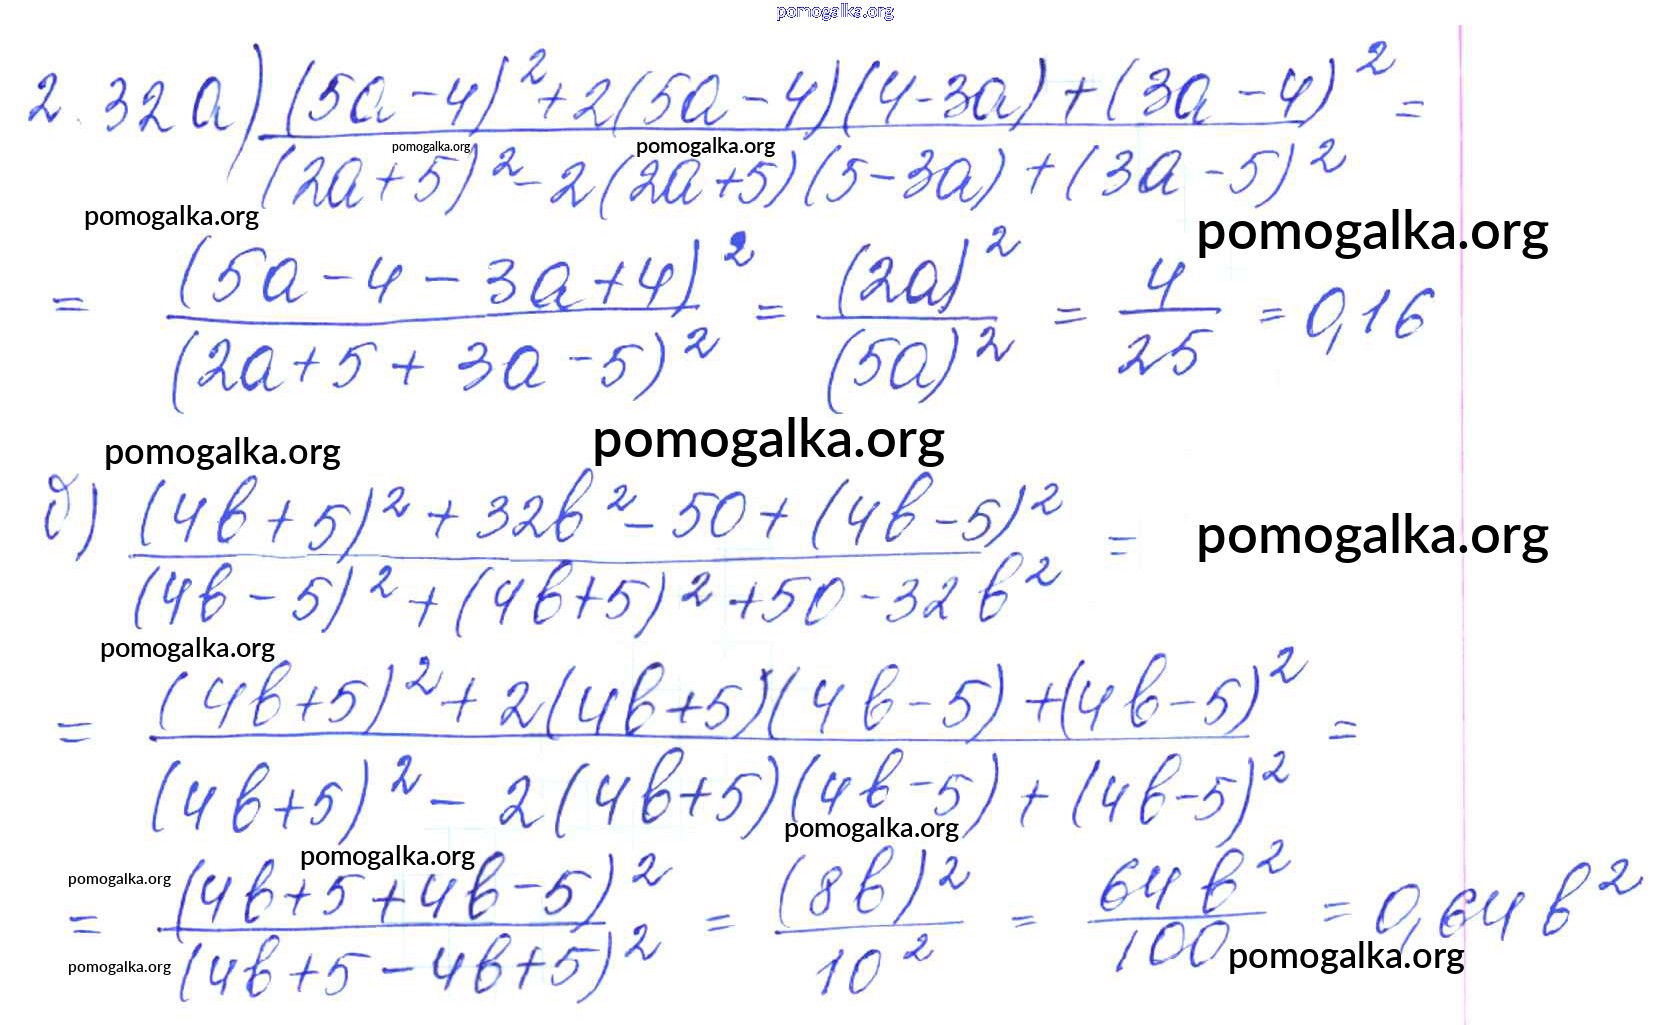 pomogalka.org
2.32 а) (5a-4)²+2(5a-4)(4-3a)+(3a-4)² =
pomogalka.org pomogalka.org
(2a+5)²-2(2a+5)(5-3a)+(3a-5)²
pomogalka.org pomogalka.org
= (5a-4-3a+4)² / (2a+5+3a-5)² = (2a)² / (5a)² = 4/25 = 0,16
pomogalka.org pomogalka.org
б) (4b+5)²+32b²-50+(4b-5)² =
pomogalka.org
(4b-5)²+(4b+5)²+50-32b²
pomogalka.org
= (4b+5)²+2(4b+5)(4b-5)+(4b-5)² =
(4b+5)²-2(4b+5)(4b-5)+(4b-5)²
pomogalka.org
pomogalka.org
pomogalka.org
= (4b+5+4b-5)² / (4b+5-4b+5)² = (8b)² / 10² = 64b² / 100 = 0,64b²
pomogalka.org pomogalka.org